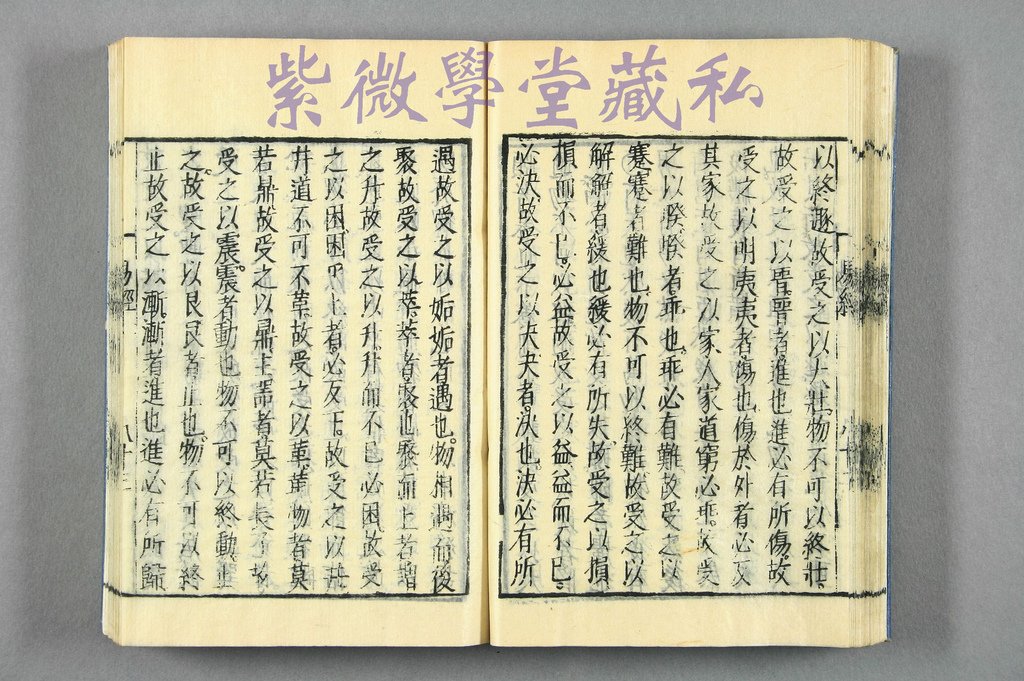 紫微學堂藏私
以終遯故受之以大壯物不可以終壯
故受之以晋晋者進也進必有所傷故
受之以明夷夷者傷也傷於外者必反
其家故受之以家人家道窮必乖故受
之以睽睽者乖也乖必有難故受之以
蹇蹇者難也物不可以終難故受之以
解解者緩也緩必有所失故受之以損
損而不已必益故受之以益益而不已
必決故受之以夬夬者決也決必有所
遇故受之以姤姤者遇也物相遇而後
聚故受之以萃萃者聚也聚而上者謂
之升故受之以升升而不已必困故受
之以困困乎上者必反下故受之以井
井道不可不革故受之以革革物者莫
若鼎故受之以鼎主器者莫若長子故
受之以震震者動也物不可以終動止
之故受之以艮艮者止也物不可以終
止故受之以漸漸者進也進必有所歸
易經